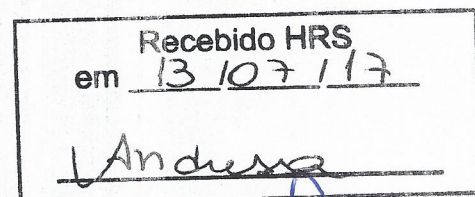 Recebido HRS
em 13/07/17
Andressa